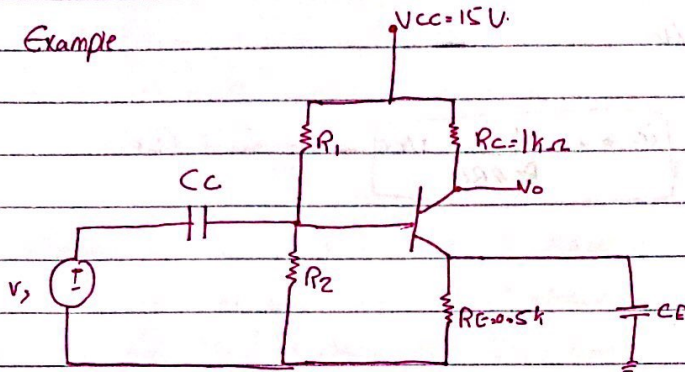 Example
VCC=15V.
R₁
RC=1kΩ
CC
Vo
R2
RE=0.5k
CE